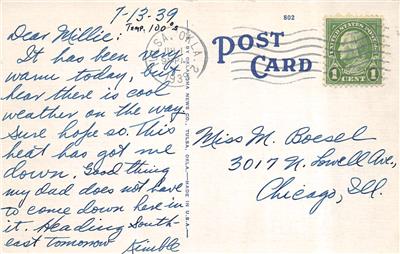 7-13-39
Temp. 100°s
Dear Millie:
It has been very
warm today, but
hear there is cool
weather on the way.
Sure hope so. This
heat has got me
down. Good thing
my Dad does not have
to come down here in
it. Heading South-
east tomorrow
Kimble
802
POST
CARD
TULSA, OKLA
1939
UNITED STATES POSTAGE
1 CENT 1
NEWS CO., TULSA, OKLA.—MADE IN U.S.A.
Miss M. Boesel
3017 N. Lowell Ave.,
Chicago, Ill.